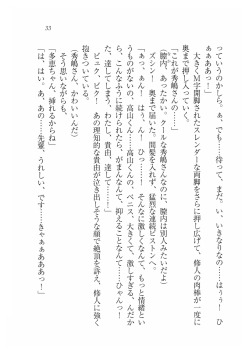 っていうのかしら。ぁ、でも……待って、まだ。い、いきなりなの……はうぅ! ひ
ゃああああっ!」
　大きくＭ字開脚されたスレンダーな両脚をさらに押し広げて、脩人の肉棒が一度に
奥まで押し入っていく。
「これが秀嶋さんの……」
(膣内、あったかい。クールな秀嶋さんなのに、膣内は別人みたいだよ)
　ズシン! 奥まで届いた。間髪を入れず、猛烈な連続ピストンへ。
「あっ、ぁん! はぅぅ、ん! ひっ……! そんなに激しくなんて、もっと情緒とい
うものがないの、高山くん……高山くんの、ペニス、大きくて、激しすぎる、んだか
ら、こんなふうに続けられたら、がまんなんて、抑えることなんて……ひゃんっ!
た、達してしまう、わたし、貴由、達して……!」
　ビニク、ビク! あの理知的な貴由が泣き出しそうな顔で絶頂を訴え、脩人に強く
抱きついている。
(秀嶋さん、かわいいんだ)
　そう思いながらも、
「多恵ちゃん、挿れるからね」
「は、はい。あ、あの……先輩、うれしい、です……きゃぁぁああああっ!」
33